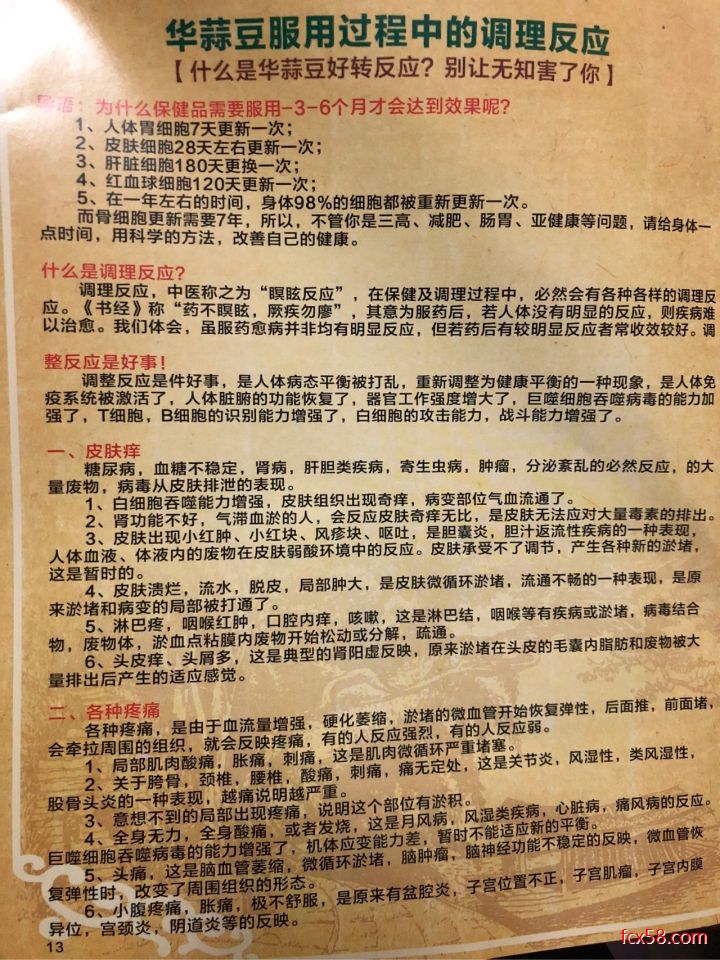 华蒜豆服用过程中的调理反应
【什么是华蒜豆好转反应？别让无知害了你】
导语：为什么保健品需要服用-3-6个月才会达到效果呢？
1、人体胃细胞7天更新一次；
2、皮肤细胞28天左右更新一次；
3、肝脏细胞180天更换一次；
4、红血球细胞120天更新一次；
5、在一年左右的时间，身体98%的细胞都被重新更新一次。
而骨细胞更新需要7年，所以，不管你是三高、减肥、肠胃、亚健康等问题，请给身体一
点时间，用科学的方法，改善自己的健康。
什么是调理反应？
调理反应，中医称之为“瞑眩反应”，在保健及调理过程中，必然会有各种各样的调理反
应。《书经》称“药不瞑眩，厥疾勿廖”，其意为服药后，若人体没有明显的反应，则疾病难
以治愈。我们体会，虽服药愈病并非均有明显反应，但若药后有较明显反应者常收效较好。调
整反应是好事！
调整反应是件好事，是人体病态平衡被打乱，重新调整为健康平衡的一种现象，是人体免
疫系统被激活了，人体脏腑的功能恢复了，器官工作强度增大了，巨噬细胞吞噬病毒的能力加
强了，T细胞，B细胞的识别能力增强了，白细胞的攻击能力，战斗能力增强了。
一、皮肤痒
糖尿病，血糖不稳定，肾病，肝胆类疾病，寄生虫病，肿瘤，分泌紊乱的必然反应，的大
量废物，病毒从皮肤排泄的表现。
1、白细胞吞噬能力增强，皮肤组织出现奇痒，病变部位气血流通了。
2、肾功能不好，气滞血淤的人，会反应皮肤奇痒无比，是皮肤无法应对大量毒素的排出。
3、皮肤出现小红肿、小红块、风疹块、呕吐，是胆囊炎，胆汁返流性疾病的一种表现，
人体血液、体液内的废物在皮肤弱酸环境中的反应。皮肤承受不了调节，产生各种新的淤堵，
这是暂时的。
4、皮肤溃烂，流水，脱皮，局部肿大，是皮肤微循环淤堵，流通不畅的一种表现，是原
来淤堵和病变的局部被打通了。
5、淋巴疼，咽喉红肿，口腔内痒，咳嗽，这是淋巴结，咽喉等有疾病或淤堵，病毒结合
物，废物体，淤血点粘膜内废物开始松动或分解，疏通。
6、头皮痒、头屑多，这是典型的肾阳虚反映，原来淤堵在头皮的毛囊内脂肪和废物被大
量排出后产生的适应感觉。
二、各种疼痛
各种疼痛，是由于血流量增强，硬化萎缩，淤堵的微血管开始恢复弹性，后面推，前面堵，
会牵拉周围的组织，就会反映疼痛，有的人反应强烈，有的人反应弱。
1、局部肌肉酸痛，胀痛，刺痛，这是肌肉微循环严重堵塞。
2、关于胯骨，颈椎，腰椎，酸痛，刺痛，痛无定处，这是关节炎，风湿性，类风湿性，
股骨头炎的一种表现，越痛说明越严重。
3、意想不到的局部出现疼痛，说明这个部位有淤积。
4、全身无力，全身酸痛，或者发烧，这是月风病，风湿类疾病，心脏病，痛风病的反应。
巨噬细胞吞噬病毒的能力增强了，机体应变能力差，暂时不能适应新的平衡。
5、头痛，这是脑血管萎缩，微循环淤堵，脑肿瘤，脑神经功能不稳定的反映，微血管恢
复弹性时，改变了周围组织的形态。
6、小腹疼痛，胀痛，极不舒服，是原来有盆腔炎，子宫位置不正，子宫肌瘤，子宫内膜
异位，宫颈炎，阴道炎等的反映。
13
fcx58.com